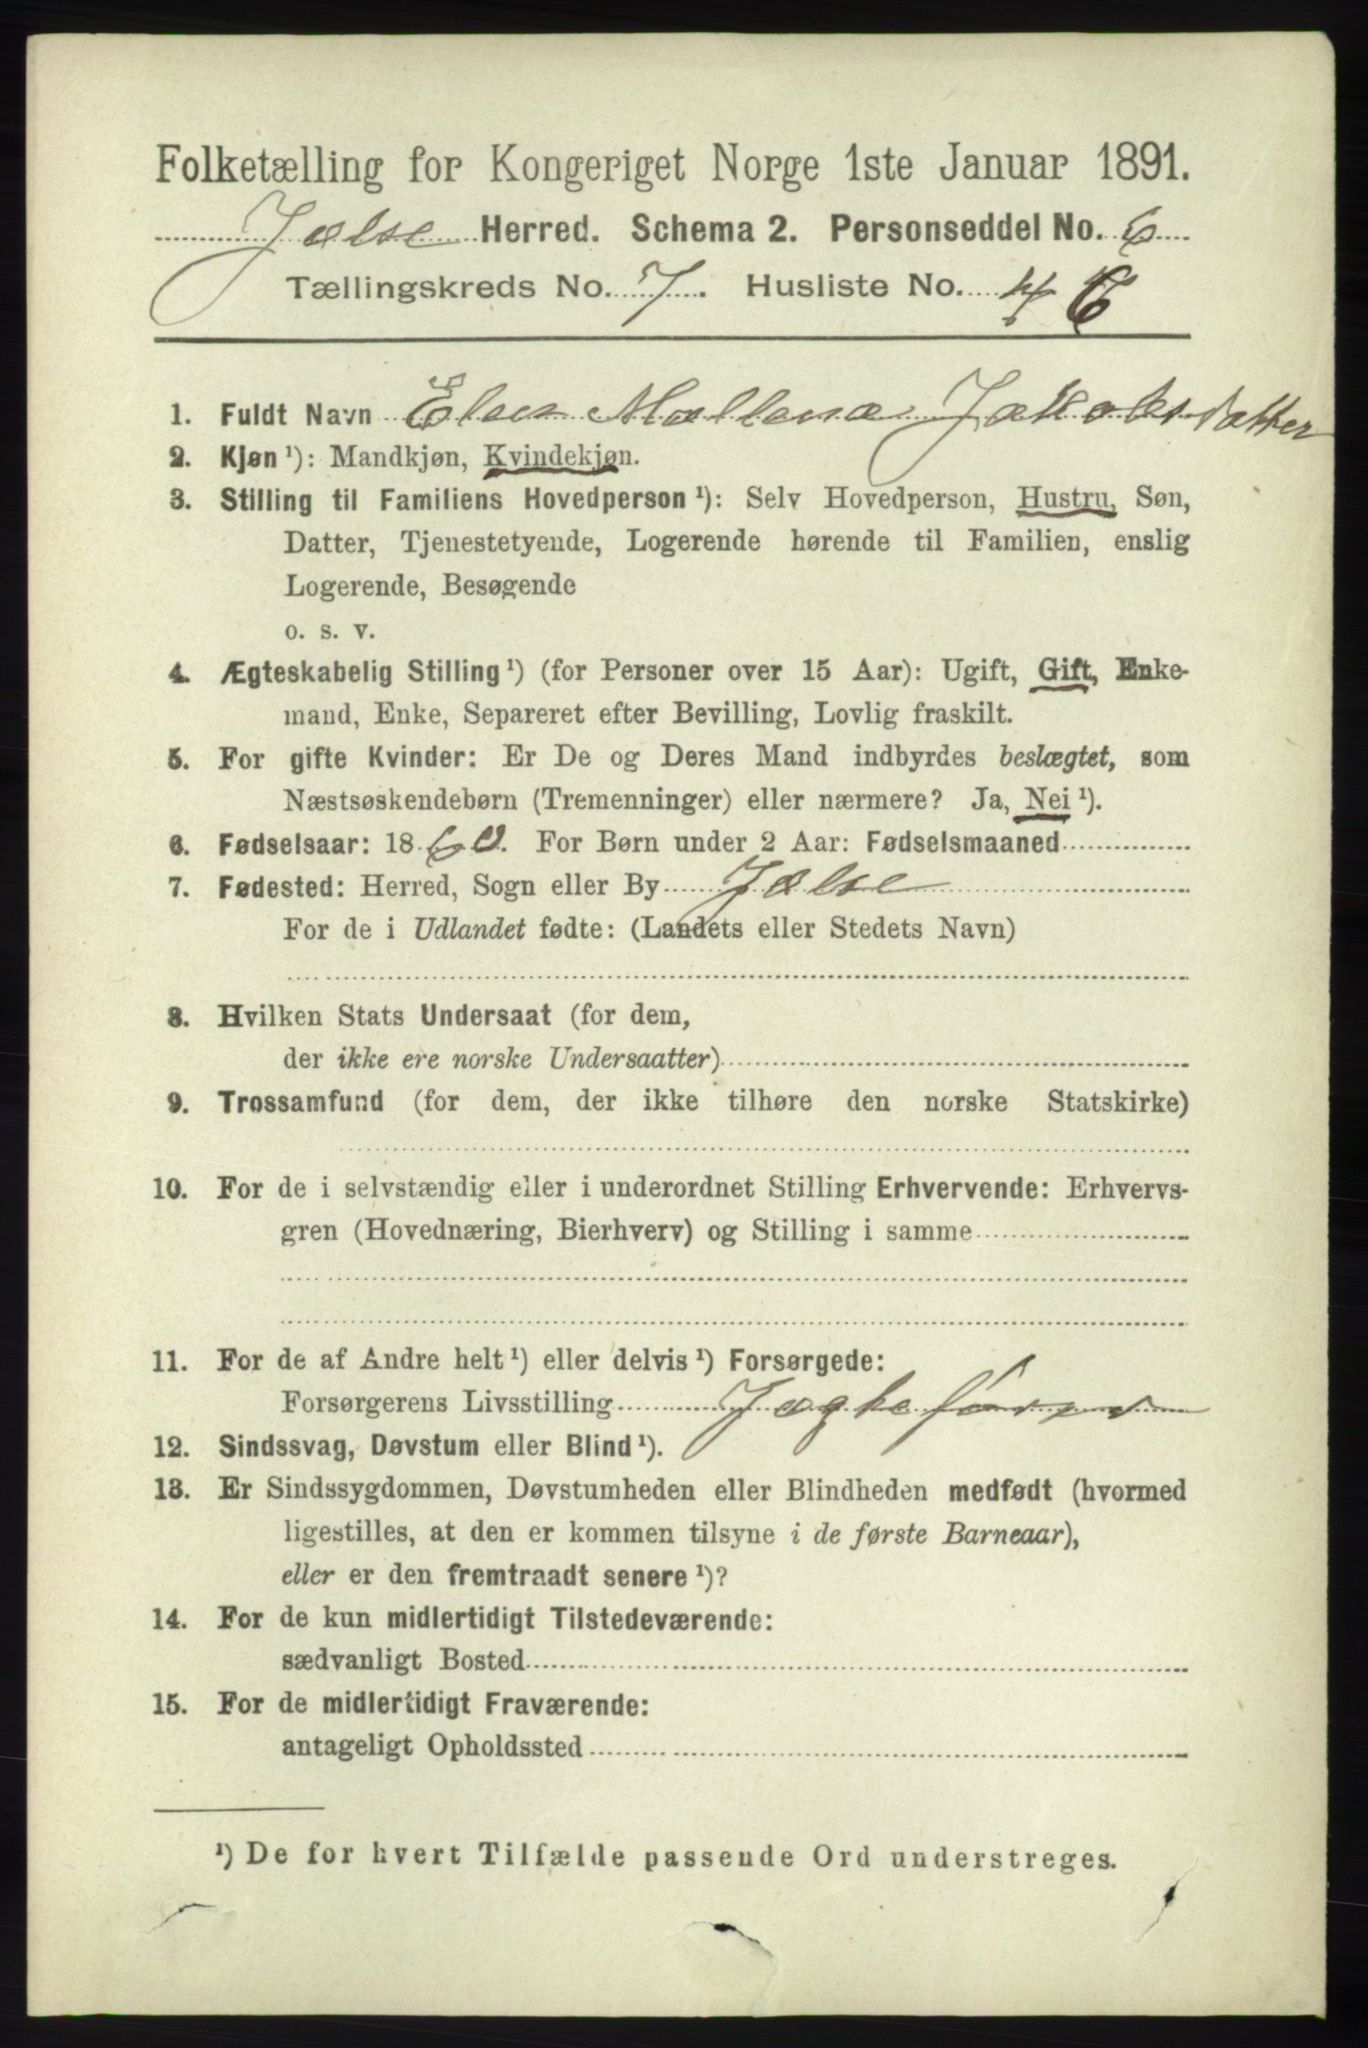 Folketælling for Kongeriget Norge 1ste Januar 1891.
Jælse Herred. Schema 2. Personseddel No. 6
Tællingskreds No. 7. Husliste No. 4 6
1. Fuldt Navn Elen Mallena Jakobsdatter
2. Kjøn ¹): Mandkjøn, Kvindekjøn.
3. Stilling til Familiens Hovedperson ¹): Selv Hovedperson, Hustru, Søn,
Datter, Tjenestetyende, Logerende hørende til Familien, enslig
Logerende, Besøgende
o. s. v.
4. Ægteskabelig Stilling ¹) (for Personer over 15 Aar): Ugift, Gift, Enke-
mand, Enke, Separeret efter Bevilling, Lovlig fraskilt.
5. For gifte Kvinder: Er De og Deres Mand indbyrdes beslægtet, som
Næstsøskendebørn (Tremenninger) eller nærmere? Ja, Nei ¹).
6. Fødselsaar: 1860. For Børn under 2 Aar: Fødselsmaaned
7. Fødested: Herred, Sogn eller By Jælse
For de i Udlandet fødte: (Landets eller Stedets Navn)
8. Hvilken Stats Undersaat (for dem,
der ikke ere norske Undersaatter)
9. Trossamfund (for dem, der ikke tilhøre den norske Statskirke)
10. For de i selvstændig eller i underordnet Stilling Erhvervende: Erhvervs-
gren (Hovednæring, Bierhverv) og Stilling i samme
11. For de af Andre helt ¹) eller delvis ¹) Forsørgede:
Forsørgerens Livsstilling
12. Sindssvag, Døvstum eller Blind ¹).
13. Er Sindssygdommen, Døvstumheden eller Blindheden medfødt (hvormed
ligestilles, at den er kommen tilsyne i de første Barneaar),
eller er den fremtraadt senere ¹)?
14. For de kun midlertidigt Tilstedeværende:
sædvanligt Bosted
15. For de midlertidigt Fraværende:
antageligt Opholdssted
¹) De for hvert Tilfælde passende Ord understreges.